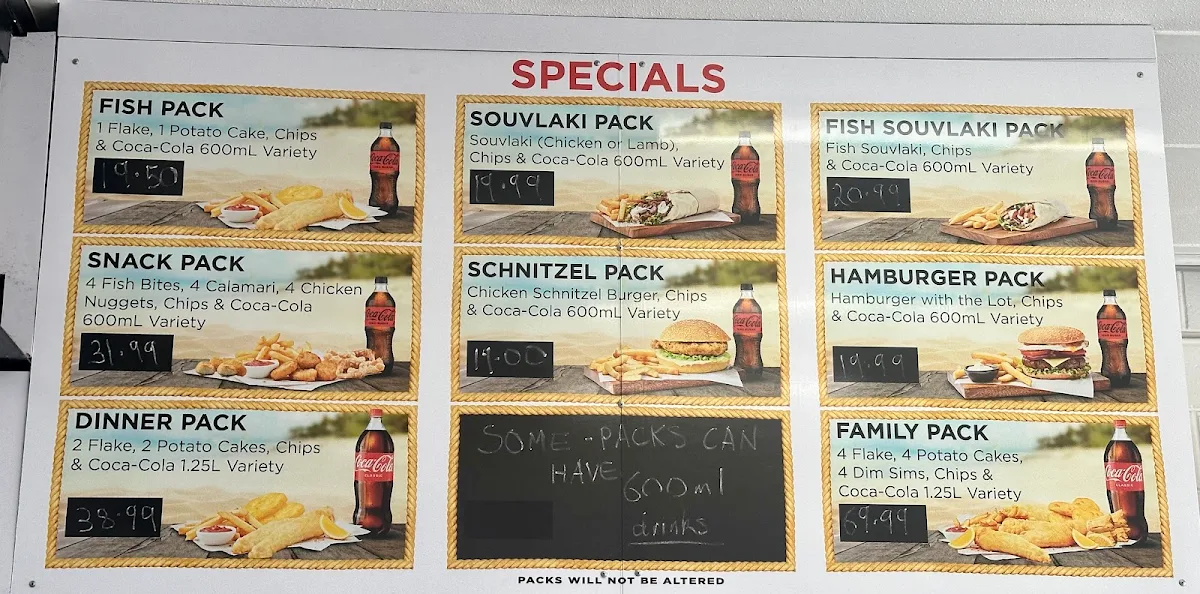 SPECIALS
FISH PACK
1 Flake, 1 Potato Cake, Chips
& Coca-Cola 600mL Variety
19.50
SOUVLAKI PACK
Souvlaki (Chicken or Lamb),
Chips & Coca-Cola 600mL Variety
19.99
FISH SOUVLAKI PACK
Fish Souvlaki, Chips
& Coca-Cola 600mL Variety
20.99
SNACK PACK
4 Fish Bites, 4 Calamari, 4 Chicken
Nuggets, Chips & Coca-Cola
600mL Variety
31.99
SCHNITZEL PACK
Chicken Schnitzel Burger, Chips
& Coca-Cola 600mL Variety
19.00
HAMBURGER PACK
Hamburger with the Lot, Chips
& Coca-Cola 600mL Variety
19.99
DINNER PACK
2 Flake, 2 Potato Cakes, Chips
& Coca-Cola 1.25L Variety
38.99
Coca-Cola
CLASSIC
SOME - PACKS CAN
HAVE 600ml
drinks
FAMILY PACK
4 Flake, 4 Potato Cakes,
4 Dim Sims, Chips &
Coca-Cola 1.25L Variety
69.99
Coca-Cola
CLASSIC
PACKS WILL NOT BE ALTERED